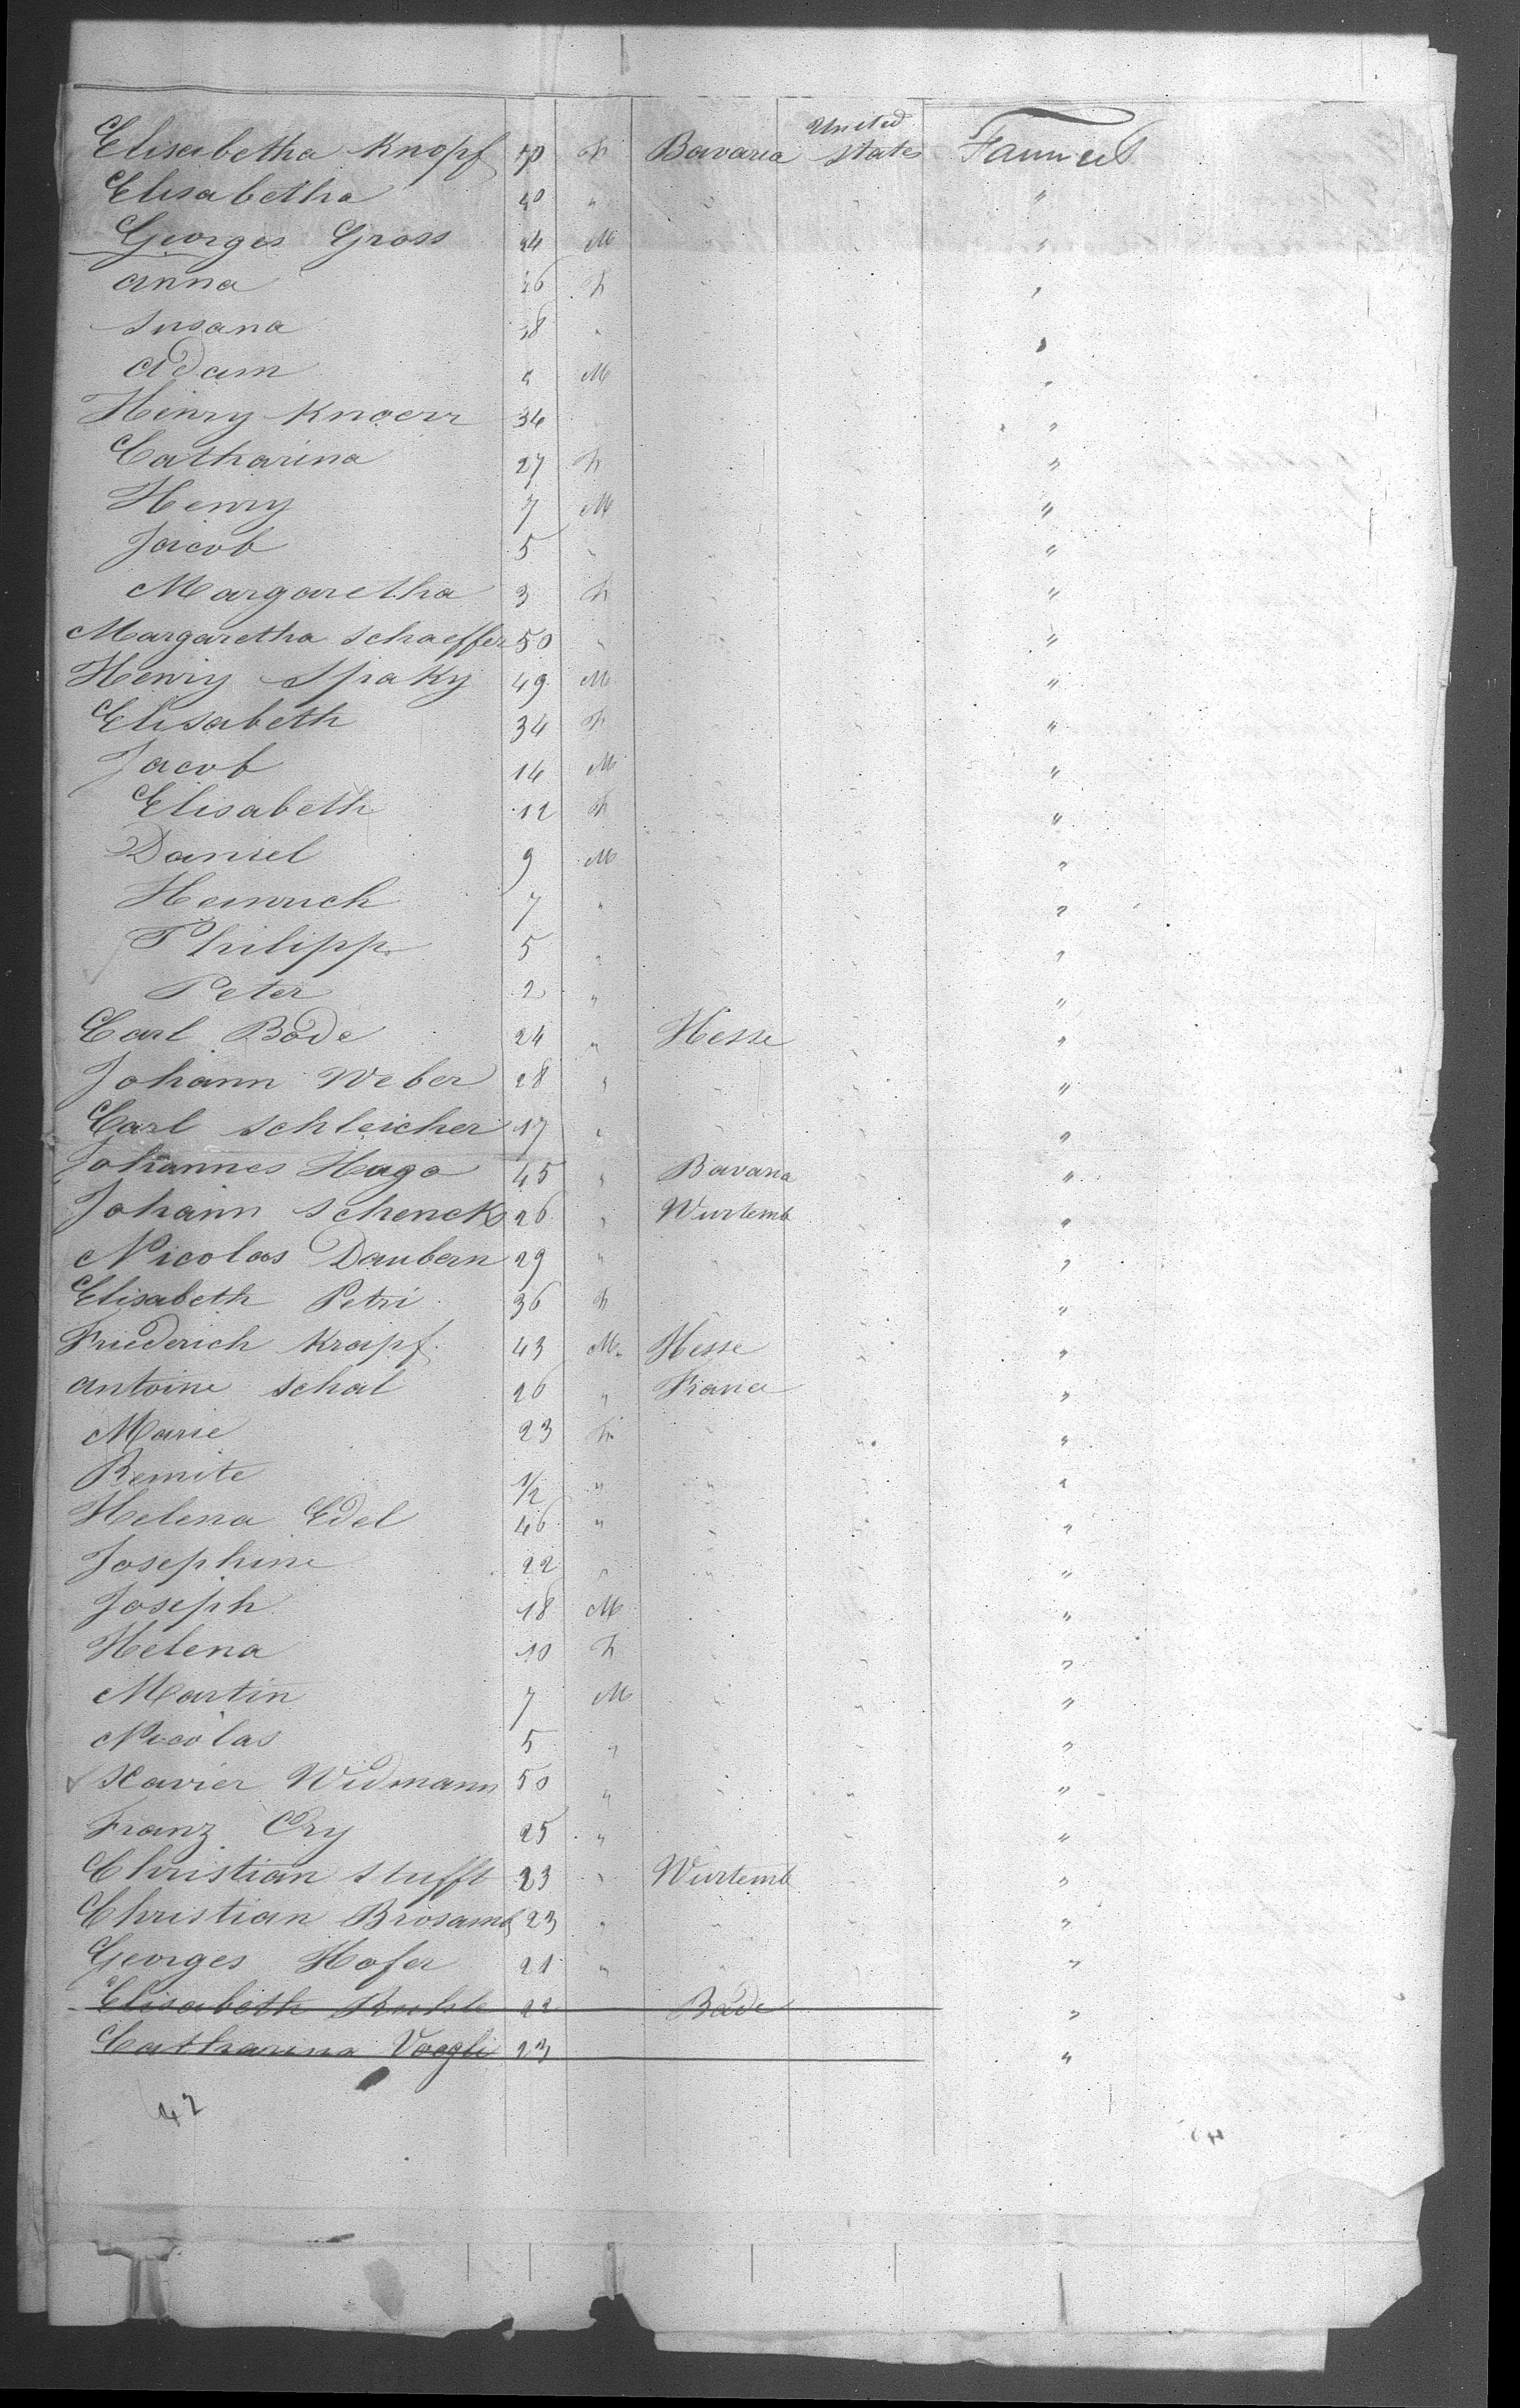 Elisabetha Knopf F Bavaria United States Farmers
Elisabetha 40 " " " "
Georges Gross 24 M " " "
Anna 26 F " " "
Susana 18 " " " "
Adam M " " "
Henry Knoerr 34 " " "
Catharina 27 F " " "
Henry 7 M " " "
Jacob 5 " " " "
Margaretha 3 F " " "
Margaretha Schaeffer 50 " " " "
Henry Spaky 49 M " " "
Elisabeth 34 F " " "
Jacob 14 M " " "
Elisabeth 12 F " " "
Daniel 9 M " " "
Heinrich 7 " " " "
Philipp 5 " " " "
Peter 2 " " " "
Carl Bode 24 " Hesse " "
Johann Weber 28 " " " "
Carl Schleicher 17 " " " "
Johannes Hugo 45 " Bavaria " "
Johann Schenck 26 " Wurtemb " "
Nicolas Daubern 29 " " " "
Elisabeth Petri 36 F " " "
Friederich Krapf 43 M Hesse " "
Antoine Schal 26 " France " "
Marie 23 F " " "
Remite 1/2 " " " "
Helena Edel 46 " " " "
Josephine 22 " " " "
Joseph 18 M " " "
Helena 10 F " " "
Martin 7 M " " "
Nicolas 5 " " " "
Xavier Widmann 50 " " " "
Franz Ory 25 " " " "
Christian Stufft 23 " Wurtemb " "
Christian Brosame 23 " " " "
Georges Hofer 21 " " " "
Elisabeth Ruhle 22 Bade "
Catharina Voegli 23 "
42